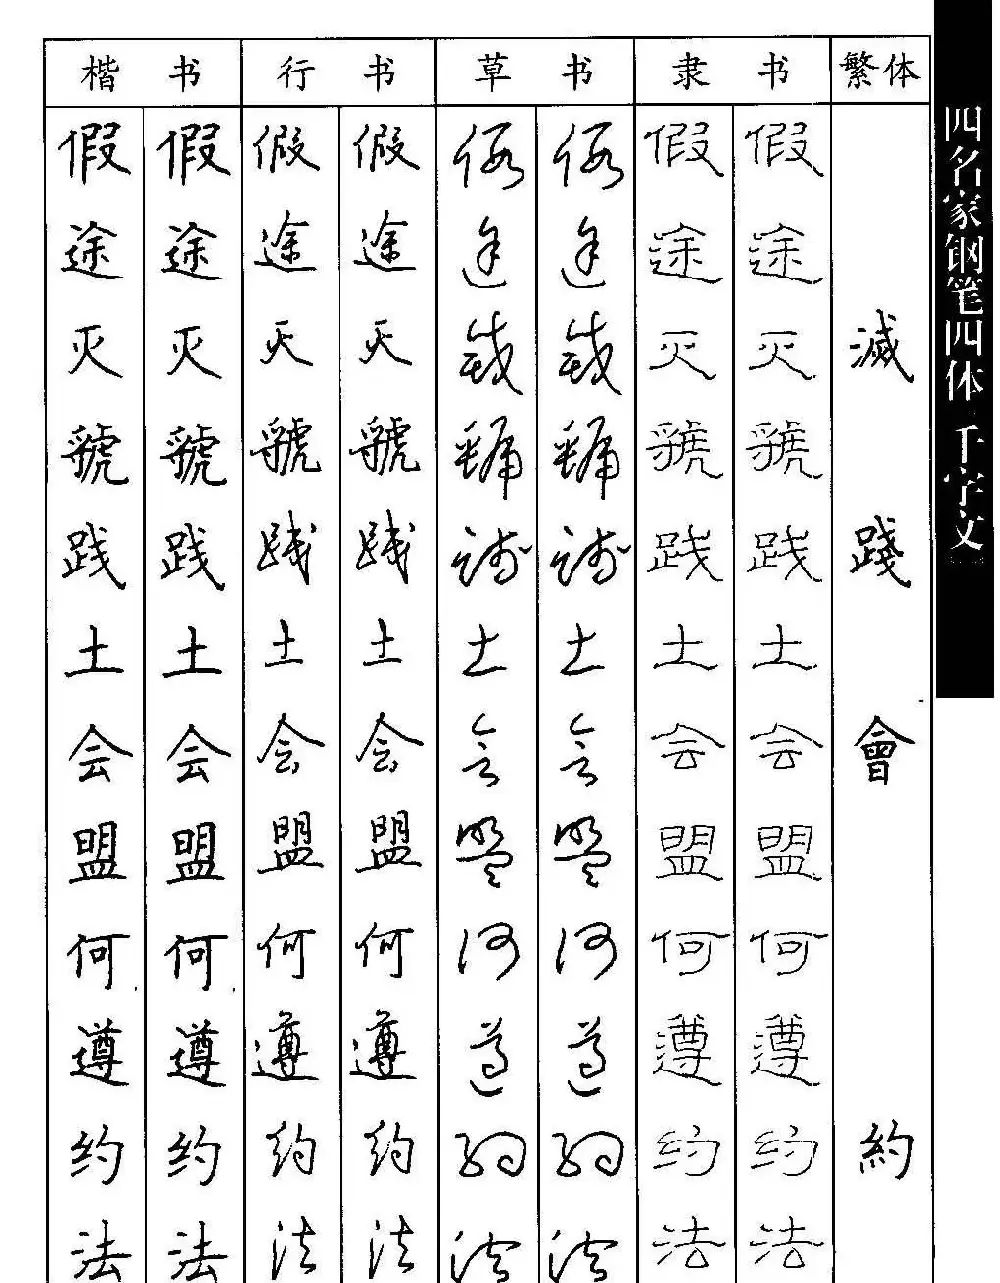 楷书 行书 草书 隶书 繁体
假 假 假 假 假 假 假 假
途 途 途 途 途 途 途 途
灭 灭 灭 灭 灭 灭 灭 灭 滅
虢 虢 虢 虢 虢 虢 虢 虢
践 践 践 践 践 践 践 践 踐
土 土 土 土 土 土 土 土
会 会 会 会 会 会 会 会 會
盟 盟 盟 盟 盟 盟 盟 盟
何 何 何 何 何 何 何 何
遵 遵 遵 遵 遵 遵 遵 遵
约 约 约 约 约 约 约 约 約
法 法 法 法 法 法 法 法
四名家钢笔四体千字文